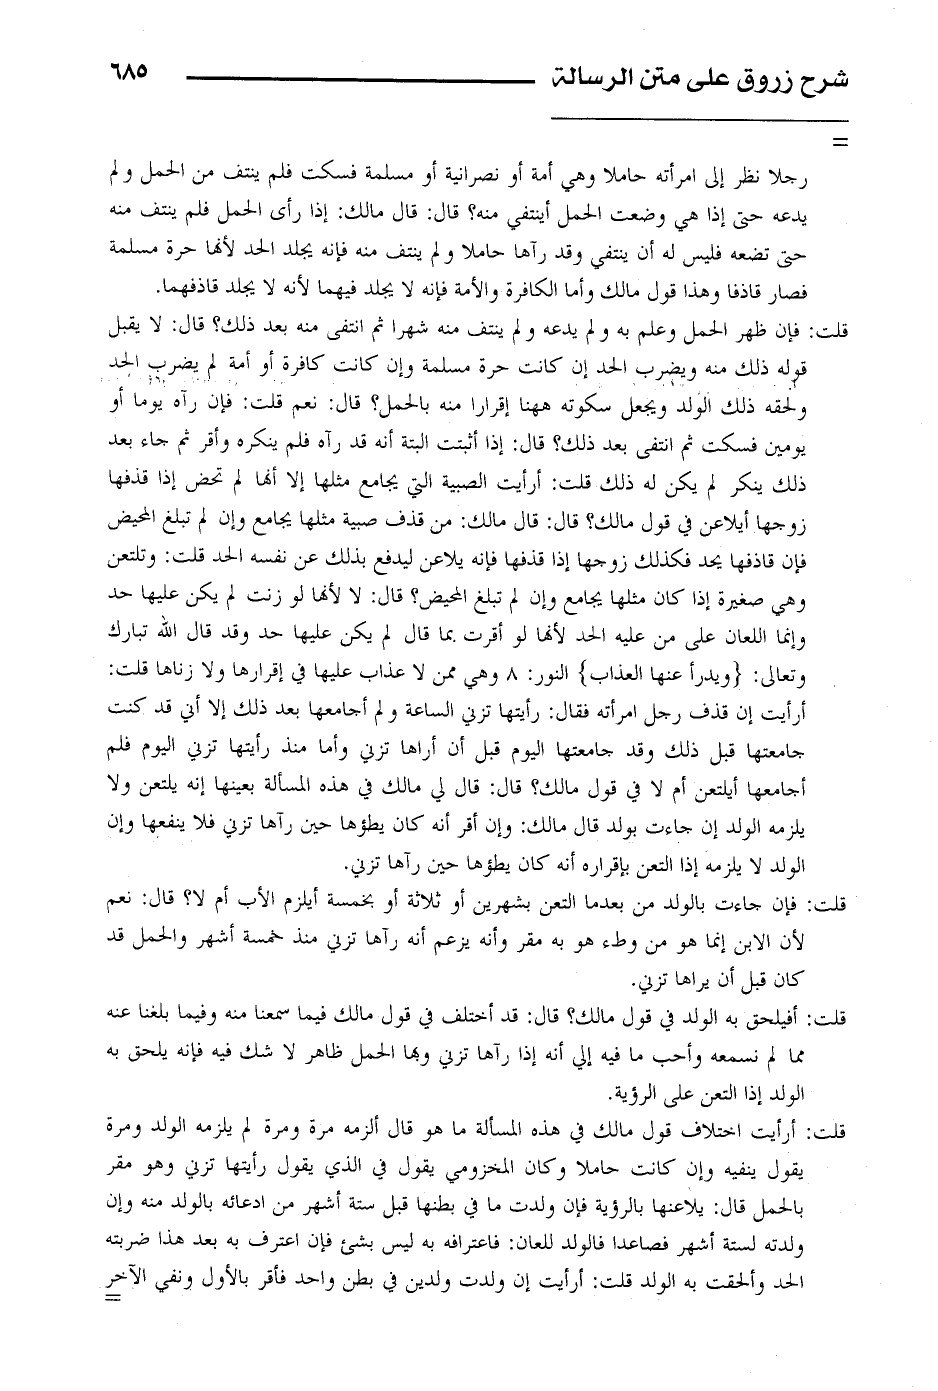 شرح زروق على متن الرسالة ٦٨٥
=
رجلا نظر إلى امرأته حاملا وهي أمة أو نصرانية أو مسلمة فسكت فلم ينتف من الحمل ولم
يدعه حتى إذا هي وضعت الحمل أينتفي منه؟ قال: قال مالك: إذا رأى الحمل فلم ينتف منه
حتى تضعه فليس له أن ينتفي وقد رآها حاملا ولم ينتف منه فإنه يجلد الحد لأنها حرة مسلمة
فصار قاذفا وهذا قول مالك وأما الكافرة والأمة فإنه لا يجلد فيهما لأنه لا يجلد قاذفهما.
قلت: فإن ظهر الحمل وعلم به ولم يدعه ولم ينتف منه شهرا ثم انتفى منه بعد ذلك؟ قال: لا يقبل
قوله ذلك منه ويضرب الحد إن كانت حرة مسلمة وإن كانت كافرة أو أمة لم يضرب الحد
ولحقه ذلك الولد ويجعل سكوته ههنا إقرارا منه بالحمل؟ قال: نعم قلت: فإن رآه يوما أو
يومين فسكت ثم انتفى بعد ذلك؟ قال: إذا أثبتت البتة أنه قد رآه فلم ينكره وأقر ثم جاء بعد
ذلك ينكر لم يكن له ذلك قلت: أرأيت الصبية التي يجامع مثلها إلا أنها لم تحض إذا قذفها
زوجها أيلاعن في قول مالك؟ قال: قال مالك: من قذف صبية مثلها يجامع وإن لم تبلغ المحيض
فإن قاذفها يحد فكذلك زوجها إذا قذفها فإنه يلاعن ليدفع بذلك عن نفسه الحد قلت: وتلتعن
وهي صغيرة إذا كان مثلها يجامع وإن لم تبلغ المحيض؟ قال: لا لأنها لو زنت لم يكن عليها حد
وإنما اللعان على من عليه الحد لأنها لو أقرت بما قال لم يكن عليها حد وقد قال الله تبارك
وتعالى: {ويدرأ عنها العذاب} النور: ٨ وهي ممن لا عذاب عليها في إقرارها ولا زناها قلت:
أرأيت إن قذف رجل امرأته فقال: رأيتها تزني الساعة ولم أجامعها بعد ذلك إلا أني قد كنت
جامعتها قبل ذلك وقد جامعتها اليوم قبل أن أراها تزني وأما منذ رأيتها تزني اليوم فلم
أجامعها أيلتعن أم لا في قول مالك؟ قال: قال لي مالك في هذه المسألة بعينها إنه يلتعن ولا
يلزمه الولد إن جاءت بولد قال مالك: وإن أقر أنه كان يطؤها حين رآها تزني فلا ينفعها وإن
الولد لا يلزمه إذا التعن بإقراره أنه كان يطؤها حين رآها تزني.
قلت: فإن جاءت بالولد من بعدما التعن بشهرين أو ثلاثة أو بخمسة أيلزم الأب أم لا؟ قال: نعم
لأن الابن إنما هو من وطء هو به مقر وأنه يزعم أنه رآها تزني منذ خمسة أشهر والحمل قد
كان قبل أن يراها تزني.
قلت: أفيلحق به الولد في قول مالك؟ قال: قد أختلف في قول مالك فيما سمعنا منه وفيما بلغنا عنه
مما لم نسمعه وأحب ما فيه إلي أنه إذا رآها تزني وبها الحمل ظاهر لا شك فيه فإنه يلحق به
الولد إذا التعن على الرؤية.
قلت: أرأيت اختلاف قول مالك في هذه المسألة ما هو قال ألزمه مرة ومرة لم يلزمه الولد ومرة
يقول ينفيه وإن كانت حاملا وكان المخزومي يقول في الذي يقول رأيتها تزني وهو مقر
بالحمل قال: يلاعنها بالرؤية فإن ولدت ما في بطنها قبل ستة أشهر من ادعائه بالولد منه وإن
ولدته لستة أشهر فصاعدا فالولد للعان: فاعترافه به ليس بشئ فإن اعترف به بعد هذا ضربته
الحد وألحقت به الولد قلت: أرأيت إن ولدت ولدين في بطن واحد فأقر بالأول ونفي الآخر
=